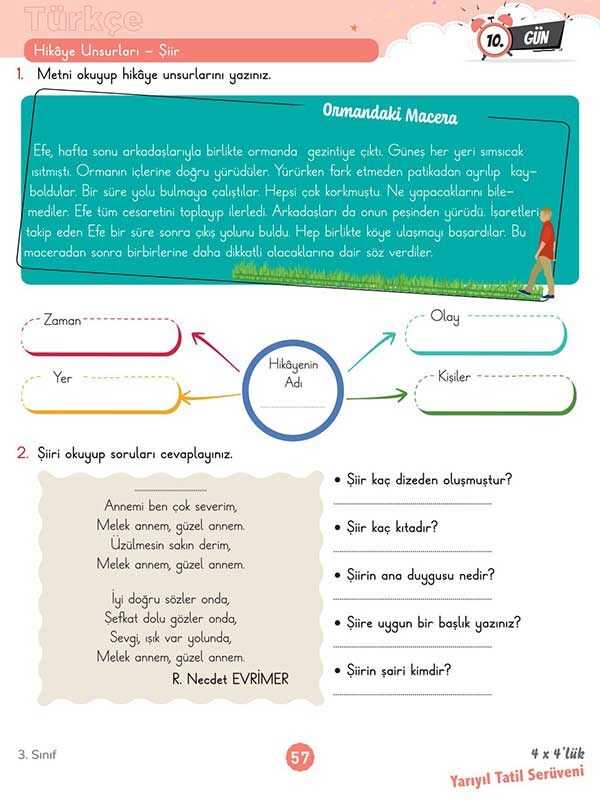 Türkçe
10. GÜN
Hikâye Unsurları – Şiir
1. Metni okuyup hikâye unsurlarını yazınız.
Ormandaki Macera
Efe, hafta sonu arkadaşlarıyla birlikte ormanda gezintiye çıktı. Güneş her yeri sımsıcak
ısıtmıştı. Ormanın içlerine doğru yürüdüler. Yürürken fark etmeden patikadan ayrılıp kay-
boldular. Bir süre yolu bulmaya çalıştılar. Hepsi çok korkmuştu. Ne yapacaklarını bile-
mediler. Efe tüm cesaretini toplayıp ilerledi. Arkadaşları da onun peşinden yürüdü. İşaretleri
takip eden Efe bir süre sonra çıkış yolunu buldu. Hep birlikte köye ulaşmayı başardılar. Bu
maceradan sonra birbirlerine daha dikkatli olacaklarına dair söz verdiler.
Zaman
Olay
Hikâyenin
Adı
Yer
Kişiler
2. Şiiri okuyup soruları cevaplayınız.
Annemi ben çok severim,
Melek annem, güzel annem.
Üzülmesin sakın derim,
Melek annem, güzel annem.
İyi doğru sözler onda,
Şefkat dolu gözler onda,
Sevgi, ışık var yolunda,
Melek annem, güzel annem.
R. Necdet EVRİMER
• Şiir kaç dizeden oluşmuştur?
• Şiir kaç kıtadır?
• Şiirin ana duygusu nedir?
• Şiire uygun bir başlık yazınız?
• Şiirin şairi kimdir?
3. Sınıf
57
4 x 4'lük
Yarıyıl Tatil Serüveni